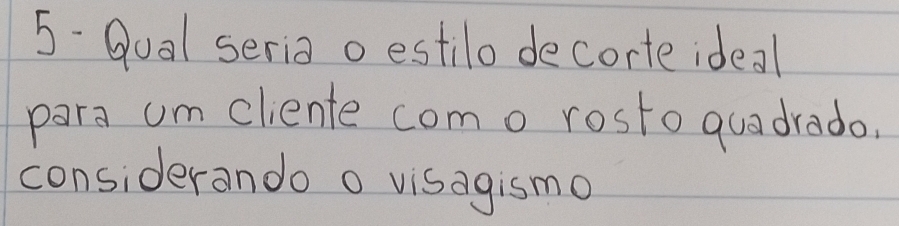 5- Qual seria o estilo de corte ideal
para um cliente com o rosto quadrado.
considerando o visagismo